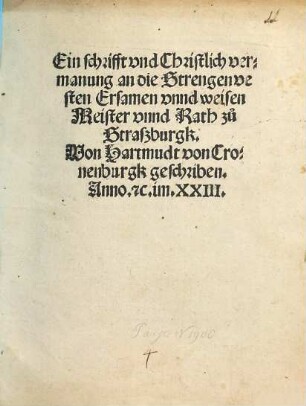 Ein schrifft vnd Christlich ver-
manung an die Strengen ve
sten Ersamen vnnd weisen
Meister vnnd Rath zů
Straßburgk.
Von Hartmudt von Cro-
nenburgk geschriben.
Anno.⁊c.im.XXIII.